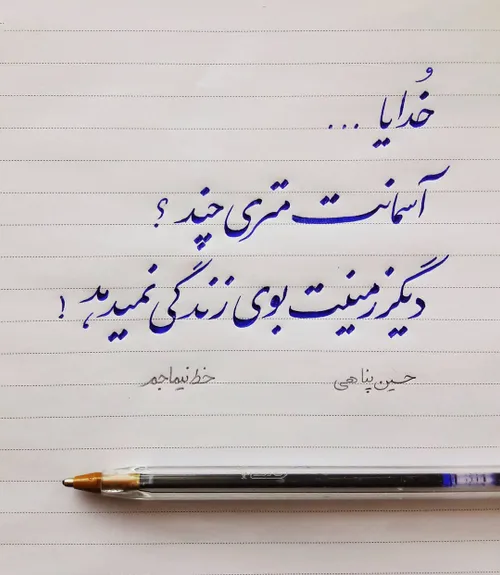 خُدایا ...
آسمانت متری چند ؟
دیگر زمینت بوی زندگی نمیدهد !
حسین پناهی خط نیما جم